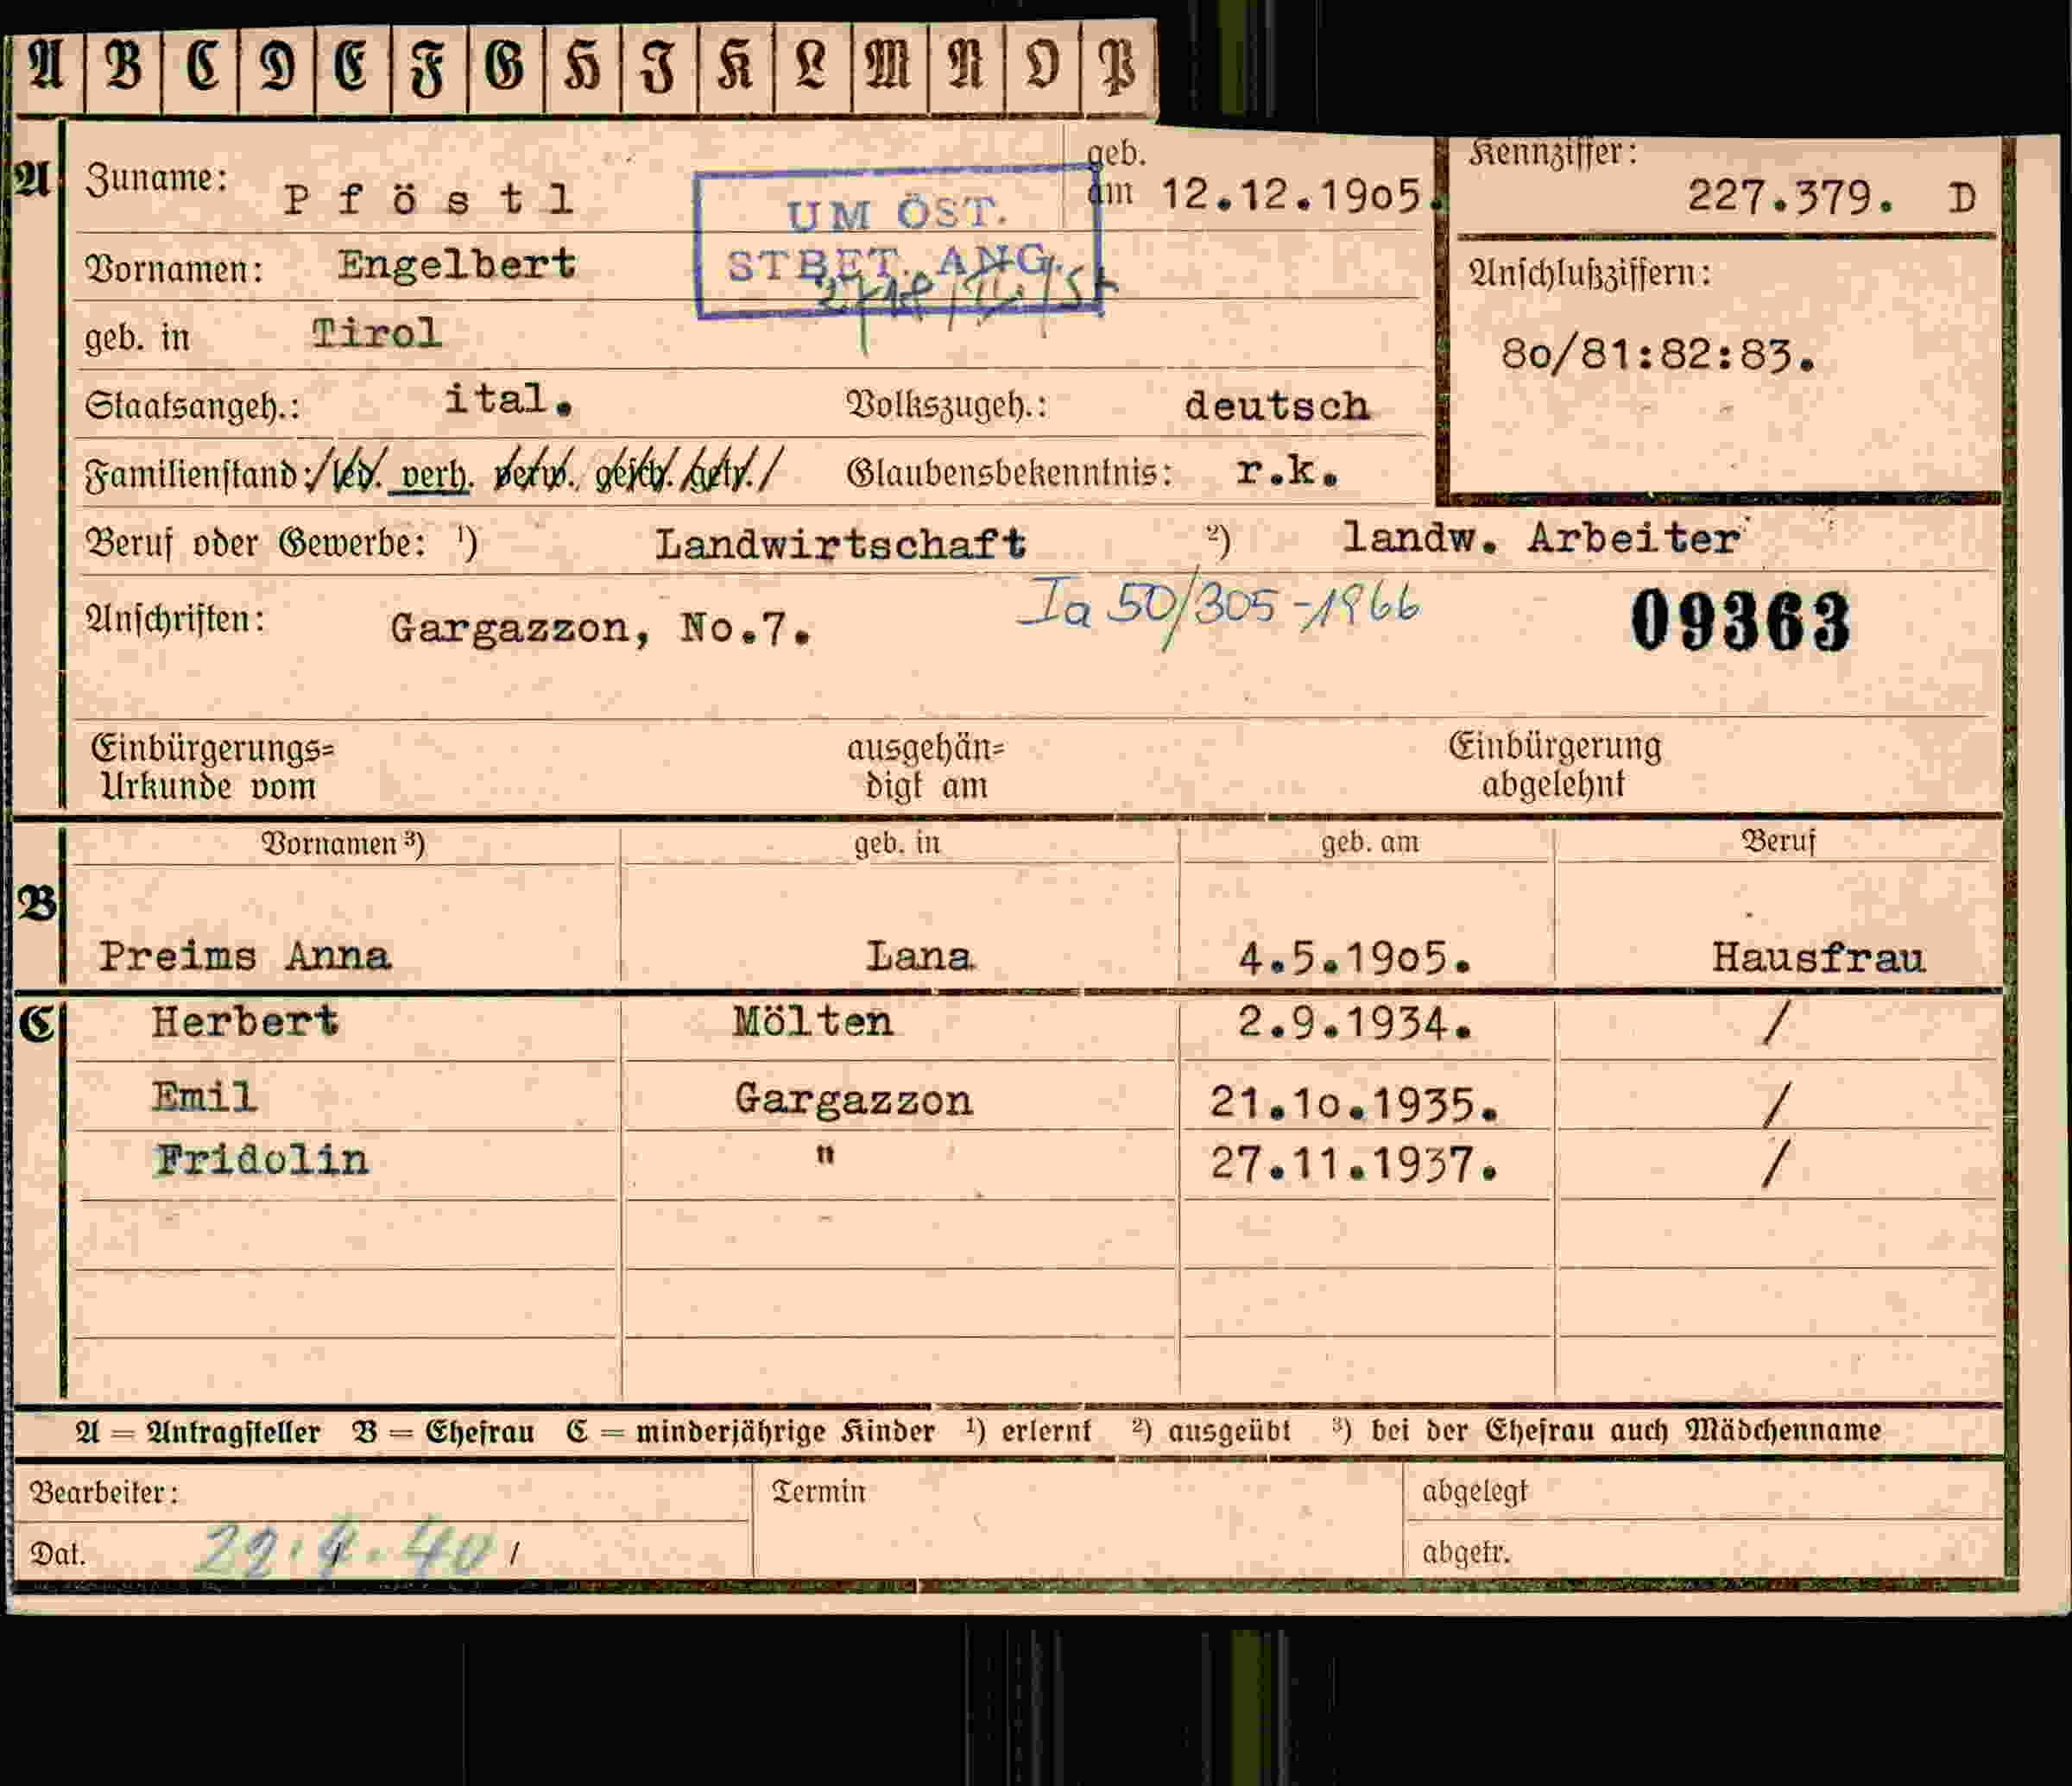 A B C D E F G H J K L M N O P
A Zuname: Pföstl geb. am 12.12.1905. Kennziffer: 227.379. D
UM ÖST.
Vornamen: Engelbert STBET. ANG. Anschlußziffern:
geb. in Tirol 80/81:82:83.
Staatsangeh.: ital. Volkszugeh.: deutsch
Familienstand: led. verh. verw. gesch. getr. Glaubensbekenntnis: r.k.
Beruf oder Gewerbe: ¹) Landwirtschaft ²) landw. Arbeiter
Anschriften: Gargazzon, No.7. Ia 50/305-1966 09363
Einbürgerungs= ausgehän= Einbürgerung
Urkunde vom digt am abgelehnt
Vornamen ³) geb. in geb. am Beruf
B
Preims Anna Lana 4.5.1905. Hausfrau
C Herbert Mölten 2.9.1934. /
Emil Gargazzon 21.10.1935. /
Fridolin " 27.11.1937. /
A = Antragsteller B = Ehefrau C = minderjährige Kinder ¹) erlernt ²) ausgeübt ³) bei der Ehefrau auch Mädchenname
Bearbeiter: Termin abgelegt
Dat. 29.4.40 / abgetr.